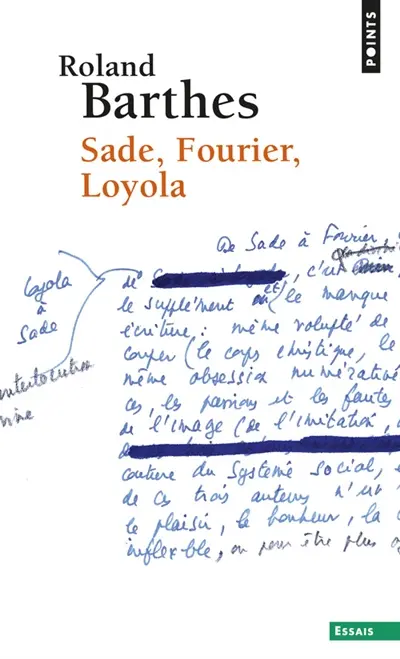 POINTS
Roland
Barthes
Sade, Fourier,
Loyola
De Sade à Fourier
Loyola
à
Sade
de , c'
le supplément et le manque
l'écriture : même volupté de
couper (le corps christique, le
même obsession numérative
ces, les passions et les fautes
de l'image (de l'imitation,
couture du système social,
de ces trois auteurs n'
le plaisir, le bonheur, la
inflexible, ou pour être plus
Essais